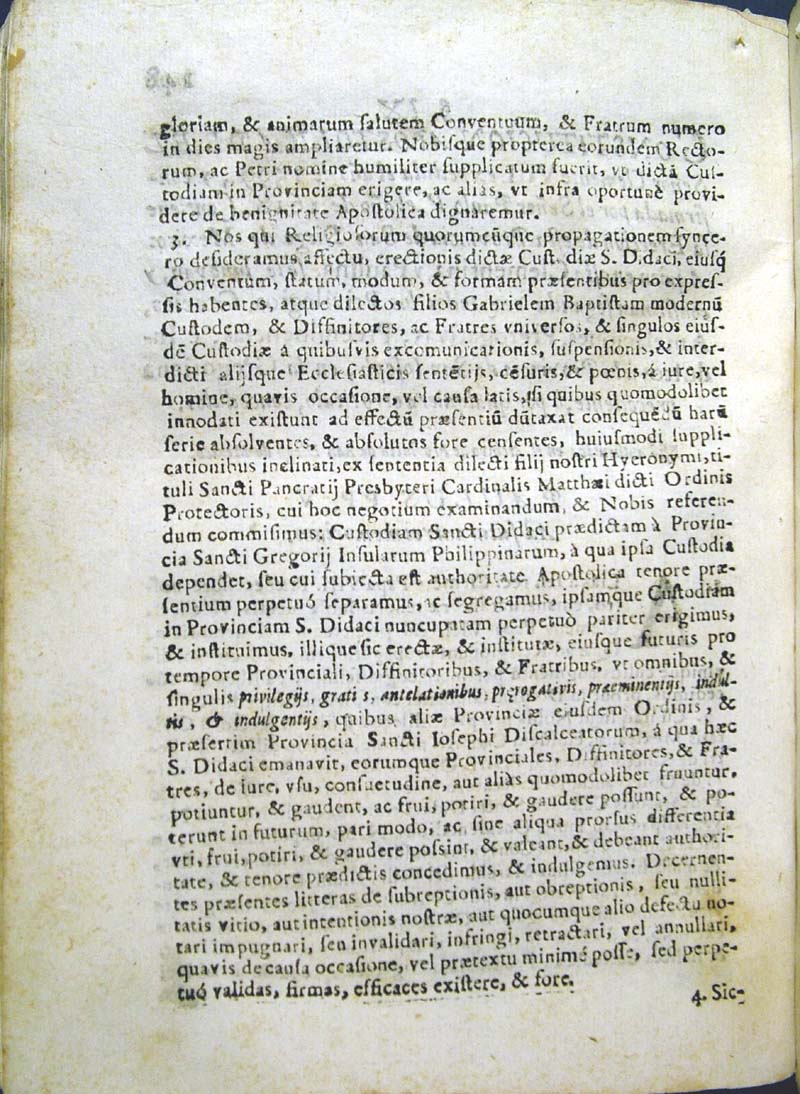 gloriam, & animarum salutem Conventuum, & Fratrum numero
in dies magis ampliaretur. Nobisque propterea eorundem Recto-
rum, ac Petri nomine humiliter supplicatum fuerit, vt dictã Cus-
todiam in Provinciam erigere, ac alias, vt infra oportunè provi-
dere de benignitate Apostolica dignaremur.
3. Nos qui Religiosorum quorumcũque propagationem synce-
ro desideramus affectu, erectionis dictæ Cust diæ S. Didaci, eiusq́
Conventum, statum, modum, & formam præsentibus pro expres-
sis habentes, atque dilectos filios Gabrielem Baptistam modernũ
Custodem, & Diffinitores, ac Fratres vniversos, & singulos eiús-
dẽ Custodiæ à quibusvis excomunicationis, suspensionis, & inter-
dicti alijsque Ecclesiasticis sentẽtijs, cẽsuris, & pœnis, á iure, vel
homine, quavis occasione, vel causa latis, si quibus quomodolibet
innodati existunt ad effectũ præsentiũ dũtaxat consequẽdũ harũ
serie absolventes, & absolutos fore censentes, huiusmodi suppli-
cationibus inclinati, ex sententia dilecti filij nostri Hyeronymi, ti-
tuli Sancti Pancratij Presbyteri Cardinalis Matthæi dicti Ordinis
Protectoris, cui hoc negotium examinandum, & Nobis referen-
dum commisimus: Custodiam Sancti Didaci prædictam à Provin-
cia Sancti Gregorij Insularum Philippinarum, à qua ipsa Custodia
dependet, seu cui subiecta est authoritate Apostolica tenore præ-
sentium perpetuó separamus, ac segregamus, ipsamque Custodiam
in Provinciam S. Didaci nuncupatam perpetuò pariter erigimus,
& instituimus, illique sic erectæ, & institutæ, eiusque futuris pro
tempore Provinciali, Diffinitoribus, & Fratribus, vt omnibus, &
singulis privilegijs, grati s, antelationibus, prerogativis, praeminentijs, indul-
tis, & indulgentijs, quibus aliæ Provinciæ eiusdem Ordinis, &
præsertim Provincia Sancti Iosephi Discalceatorum, á qua hæc
S. Didaci emanavit, eorumque Provinciales, Diffinitores, & Fra-
tres, de iure, vsu, consuetudine, aut aliàs quomodolibet fruuntur,
potiuntur, & gaudent, ac frui, potiri, & gaudere possunt, & po-
terunt in futurum, pari modo, ac sine aliqua prorsus differentia
vti, frui, potiri, & gaudere possint, & valeant, & debeant authori-
tate, & tenore prædictis concedimus, & indulgemus. Decernen-
tes præsentes litteras de subreptionis, aut obreptionis, seu nulli-
tatis vitio, aut intentionis nostræ, aut quocumque alio defectu no-
tari impugnari, seu invalidari, infringi, retractari, vel annullari,
quavis de causa occasione, vel prætextu minimé posse, sed perpe-
tuó validas, firmas, efficaces existere, & fore.
4. Sic-